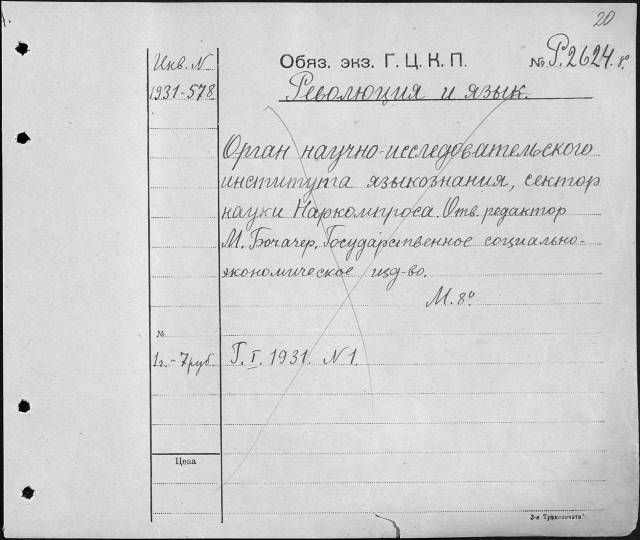 20
Инв. N
1931-578
Обяз. экз. Г. Ц. К. П.
№ Р.2624. 8°
Революция и язык.
Орган научно-исследовательского
института языкознания, сектор
науки Наркомпроса. Отв. редактор
М. Бочачер. Государственное социально-
экономическое изд-во.
М. 8°
№
1г.- 7руб.
Г. I. 1931. N 1.
Цена